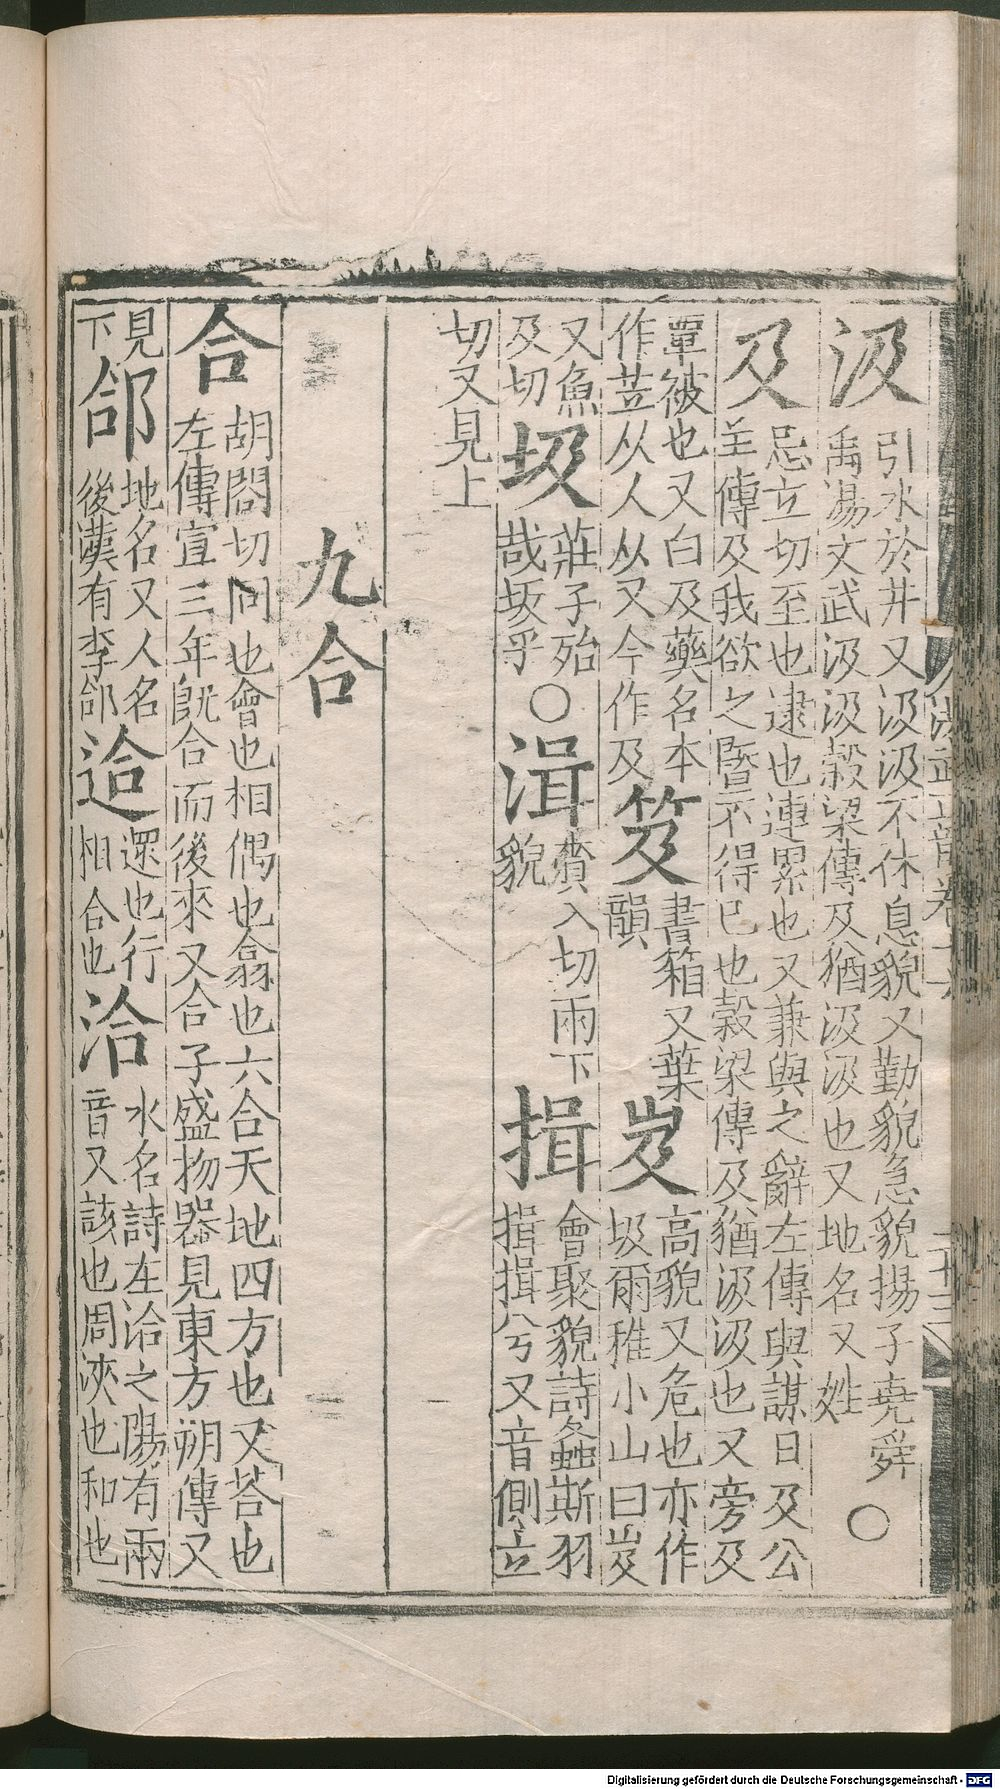 汲 引水於井又汲汲不休息貌又勤貌急貌揚子堯舜
禹湯文武汲汲穀梁傳及猶汲汲也又地名又姓 〇
及 忌立切至也逮也連累也又兼與之辭左傳與謀曰及公
羊傳及我欲之曁不得已也穀梁傳及猶汲汲也又旁及
覃被也又白及藥名本
作𦫶从人从又今作及
笈 書箱又葉
韻
岌 高貌又危也亦作
圾爾雅小山曰岌
又魚
及切
圾 莊子殆
哉圾乎
〇 湒 賷入切雨下
貌
揖 會聚貌詩螽斯羽
揖揖兮又音側立
切又見上
九合
合 胡閤切同也會也相偶也翕也六合天地四方也又荅也
左傳宣三年旣合而後來又合子盛物器見東方朔傳又
見
下
郃 地名又人名
後漢有李郃
迨 還也行
相合也
洽 水名詩在洽之陽有兩
音又該也周浹也和也
Digitalisierung gefördert durch die Deutsche Forschungsgemeinschaft - DFG